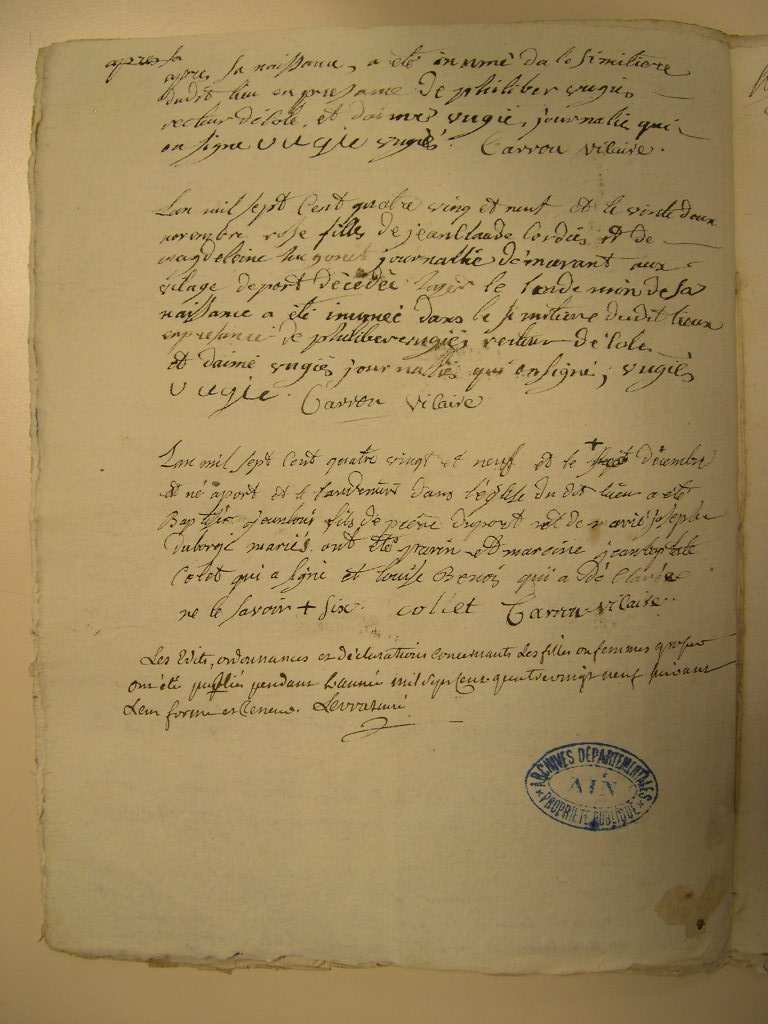 apres sa
apres sa naissance, a été inumé da le simitiere
dudit lieu en presance de philiber vugiés
recteur décole, et daimé vugié, journalié qui
on signe vugie vugiés. Carrou vicaire.
Lan mil sept Cent quatre ving et neuf et le vinte deux
novembre rose fille de jean Claude Cordié et de
magdeleine hugonet journallié démurant aux
vilage de port décédée le lendemin de sa
naissance a été inumeé dans le simitiere dudit lieux
en presance de philiber vugiés recteur décole
et daimé vugiés journalliés qui on signé; vugiés
vugie. Carrou vicaire
Lan mil sept Cent quatre vingt et neuf et le + décembre
est né a port et le landemin dans léglise du dit lieu a été
Baptisé jean louis fils de piere duport et de marie josephe
mariés ont été parin et mareine jean baptiste
Colet qui a signé et louise Benois qui a dé Clarée
ne le savoir + six. collet Carrou vicaire.
Les Edits, ordonnances et déclarations concernants les filles ou femmes grosses
ont été publiés pendant Lannée mil sept Cent quatre vingt neuf suivant
Leur forme et teneur. Levrat curé
ARCHIVES DÉPARTEMENTALES
AIN
PROPRIÉTÉ PUBLIQUE